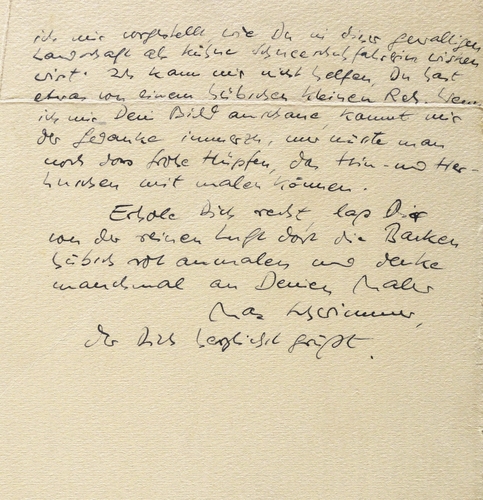 ich mir vorgestellt, wie Du in dieser gewaltigen
Landschaft als kühne Schneeschuhfahrerin wirken
wirst. Ich kann mir nicht helfen, Du hast
etwas von einem hübschen kleinen Reh. Wenn
ich mir Dein Bild anschaue, kommt mir
der Gedanke immerzu, nur müsste man
noch das frohe Hüpfen, das Hin- und Her-
huschen mit malen können.
Erhole Dich recht, lass Dir
von der reinen Luft dort die Backen
hübsch rot anmalen und denke
manchmal an Deinen Maler
Max Schwimmer,
der Dich herzlichst grüßt.